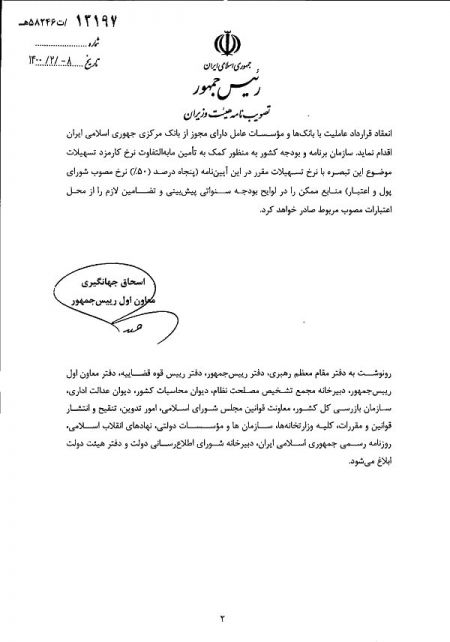 ۱۲۱۹۷/ت۵۸۲۴۶هـ
شماره
تاریخ ۱۴۰۰/۲/۰۸
جمهوری اسلامی ایران
رئیس جمهور
تصویب نامه هیئت وزیران
انعقاد قرارداد عاملیت با بانک‌ها و مؤسسات عامل دارای مجوز از بانک مرکزی جمهوری اسلامی ایران
اقدام نماید. سازمان برنامه و بودجه کشور به منظور کمک به تأمین مابه‌التفاوت نرخ کارمزد تسهیلات
موضوع این تبصره با نرخ تسهیلات مقرر در این آیین‌نامه (پنجاه درصد (۵۰٪) نرخ مصوب شورای
پول و اعتبار) منابع ممکن را در لوایح بودجه سنواتی پیش‌بینی و تضامین لازم را از محل
اعتبارات مصوب مربوط صادر خواهد کرد.
اسحاق جهانگیری
معاون اول رییس‌جمهور
رونوشت به دفتر مقام معظم رهبری، دفتر رییس‌جمهور، دفتر رییس قوه قضاییه، دفتر معاون اول
رییس‌جمهور، دبیرخانه مجمع تشخیص مصلحت نظام، دیوان محاسبات کشور، دیوان عدالت اداری،
سازمان بازرسی کل کشور، معاونت قوانین مجلس شورای اسلامی، امور تدوین، تنقیح و انتشار
قوانین و مقررات، کلیه وزارتخانه‌ها، سازمان ها و مؤسسات دولتی، نهادهای انقلاب اسلامی،
روزنامه رسمی جمهوری اسلامی ایران، دبیرخانه شورای اطلاع‌رسانی دولت و دفتر هیئت دولت
ابلاغ می‌شود.
۲